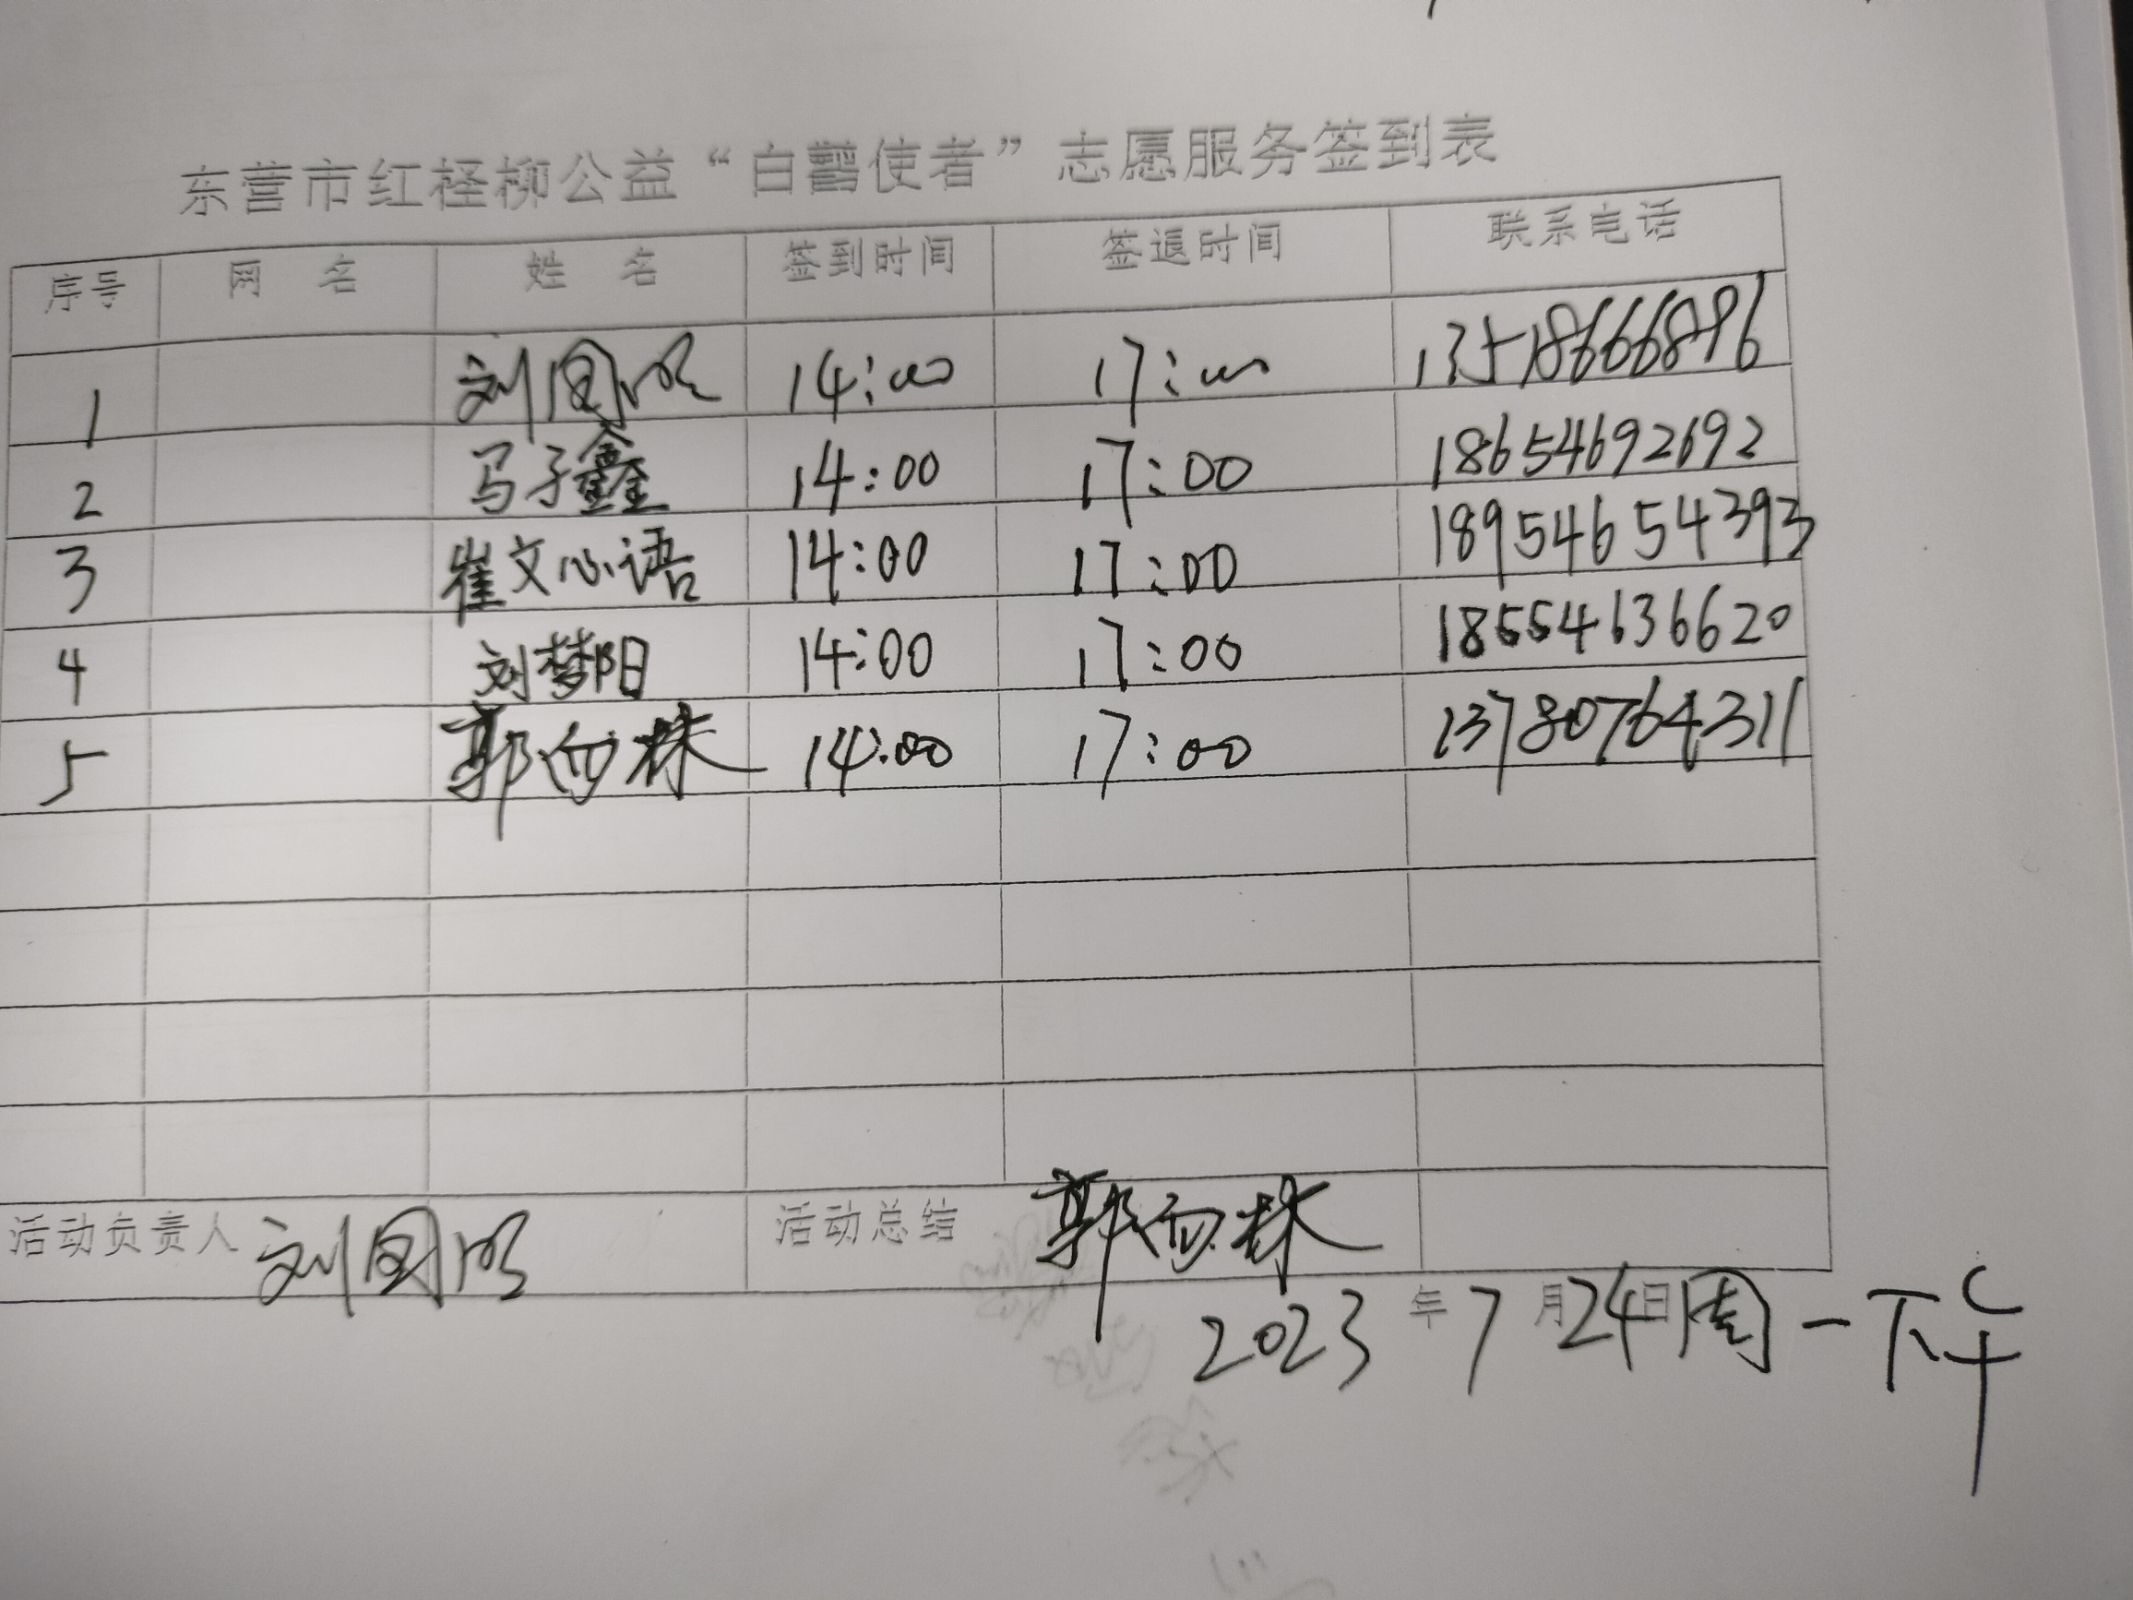 东营市红柽柳公益“白鹳使者”志愿服务签到表
序号 网 名 姓 名 签到时间 签退时间 联系电话
1 刘国明 14:00 17:00 13518666896
2 马子鑫 14:00 17:00 18654692692
3 崔文心语 14:00 17:00 18954654393
4 刘梦阳 14:00 17:00 18554636620
5 郭 株 14:00 17:00 13780764311
活动负责人 刘国明 活动总结 郭 株
2023年7月24日周一下午